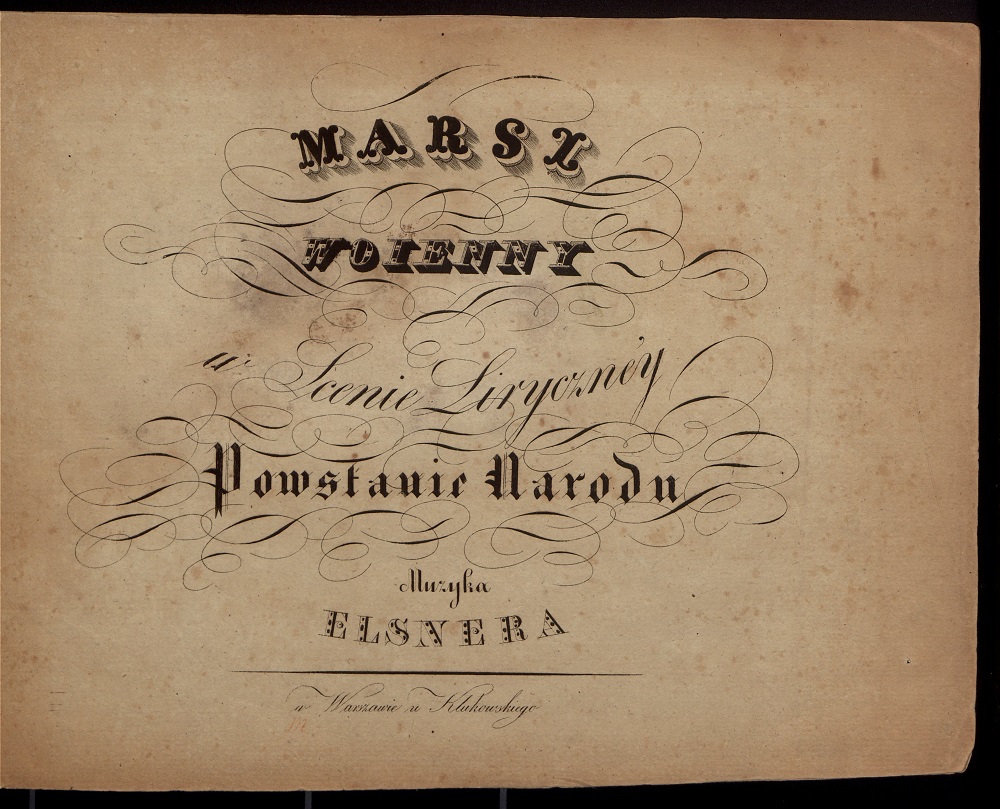 MARSZ
WOIENNY
w Scenie Liryczney
Powstanie Narodu
Muzyka
ELSNERA
w Warszawie u Klukowskiego